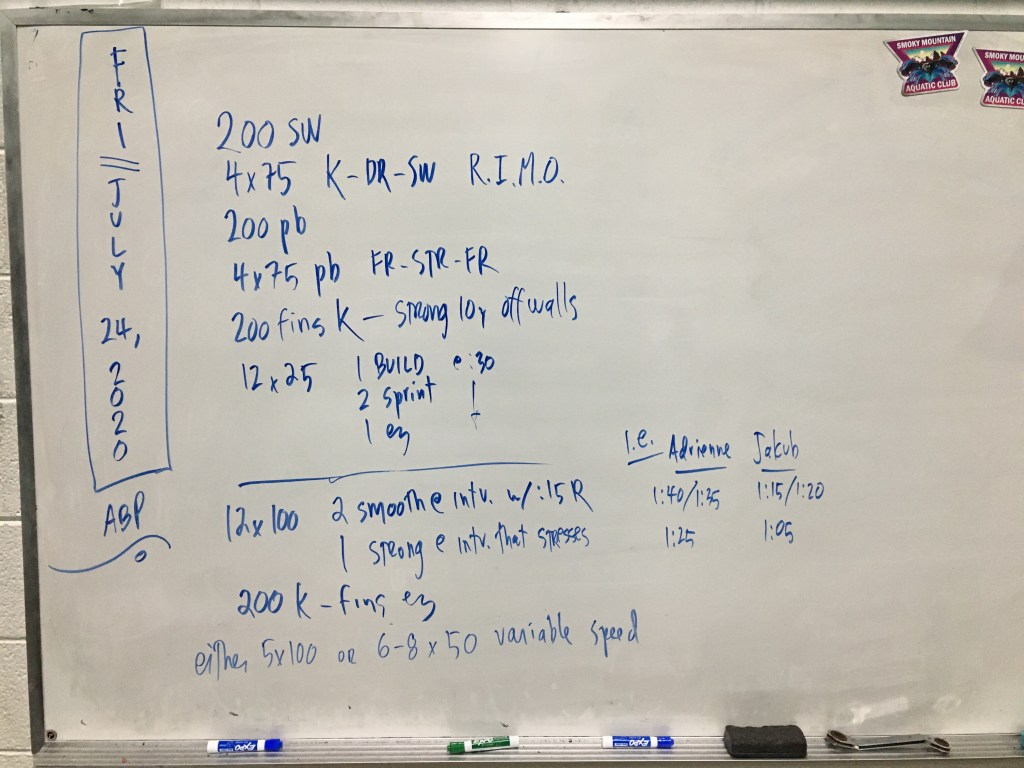 FRI
JULY
24,
2020
ABP
200 SW
4x75 K-DR-SW R.I.M.O.
200 pb
4x75 pb FR-STR-FR
200 fins K - strong 10y off walls
12x25 1 BUILD e :30
2 sprint
1 ez
12x100 2 smooth e intv. w/ :15 R
1 strong e intv. that stresses
I.e. Adrienne Jakub
1:40/1:35 1:15/1:20
1:25 1:05
200 K - fins ez
either 5x100 or 6-8 x 50 variable speed
SMOKY MOUNTAIN
AQUATIC CLUB
SMOKY MOU
AQUATIC C
EXPO
EXPO
EXPO